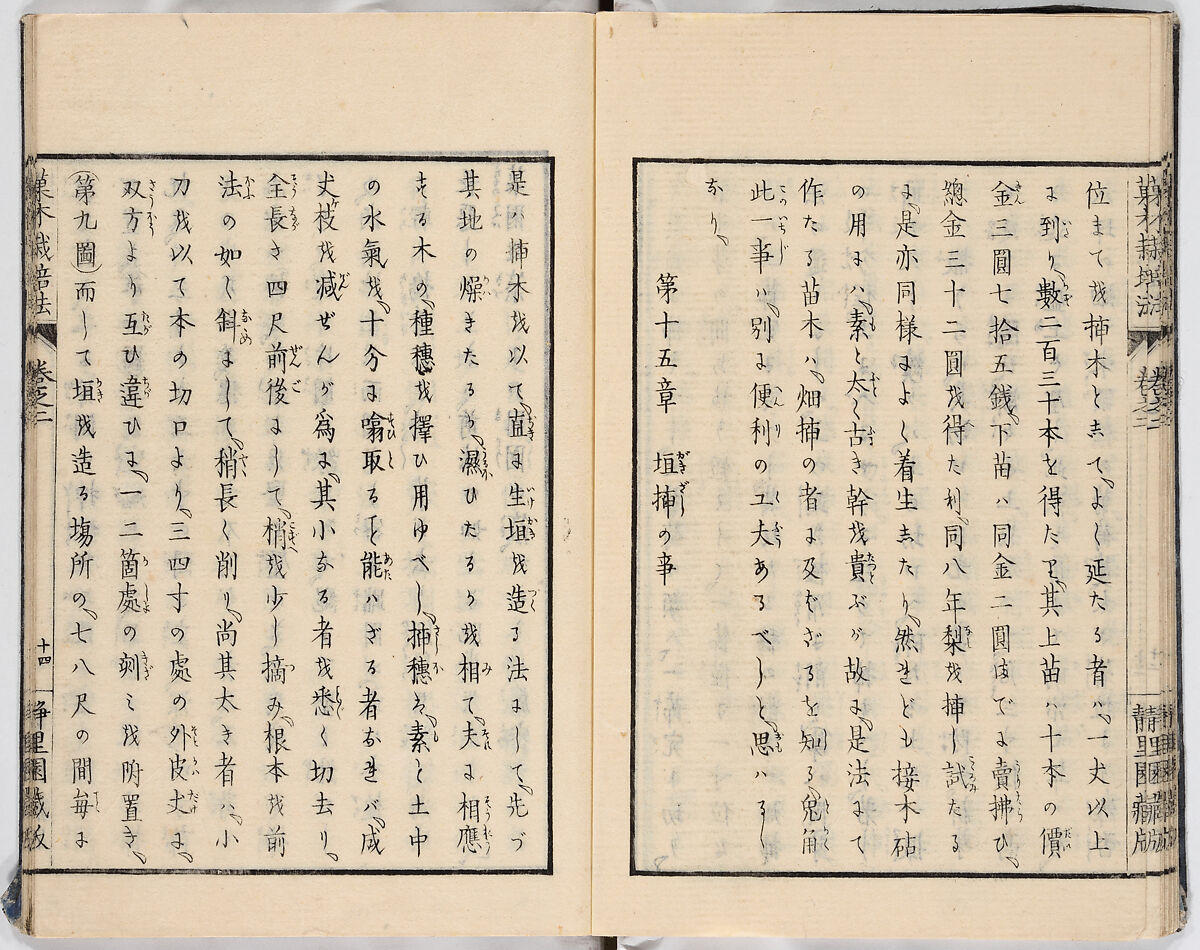 菓木栽培法 卷之二 靜里園藏版
位まて𛂞揷木と志て、よく延たる者ハ、一丈以上
に到り、數二百三十本を得たり、其上苗ハ十本の價
金三圓七拾五錢、下苗ハ同金二圓までに賣拂ひ、
總金三十二圓を得た利、同八年梨を揷し試たる
に、是亦同様によく着生志たり、然れども接木砧
の用にハ、素と太く古き幹を貴ぶが故に、是法にて
作たる苗木ハ、畑揷の者に及ばざるを知る、兎角
此一事ハ、別に便利の工夫あるべしと、思ハるゝ
なり、
第十五章 垣揷の事
是ハ揷木を以て、直に生垣を造る法にして、先づ
其地の燥きたるか、濕ひたるかを相て、夫に相應
する木の、種穗を擇ひ用ゆべし、揷穗は、素と土中
の水氣を、十分に噏取ると能ハざる者なれバ、成
丈枝を减ぜんが爲に、其小なる者を悉く切去り、
全長き四尺前後にして、梢を少し摘み、根本を前
法の如く斜にして、稍長く削り、尚其太き者ハ、小
刀を以て本の切口より、三四寸の處の外皮丈に、
双方より互ひ違ひに、一二箇處の刺ミを附置き、
(第九圖)而して垣を造る塲所の、七八尺の間毎に
菓木栽培法 卷之二 十四 靜里園藏版